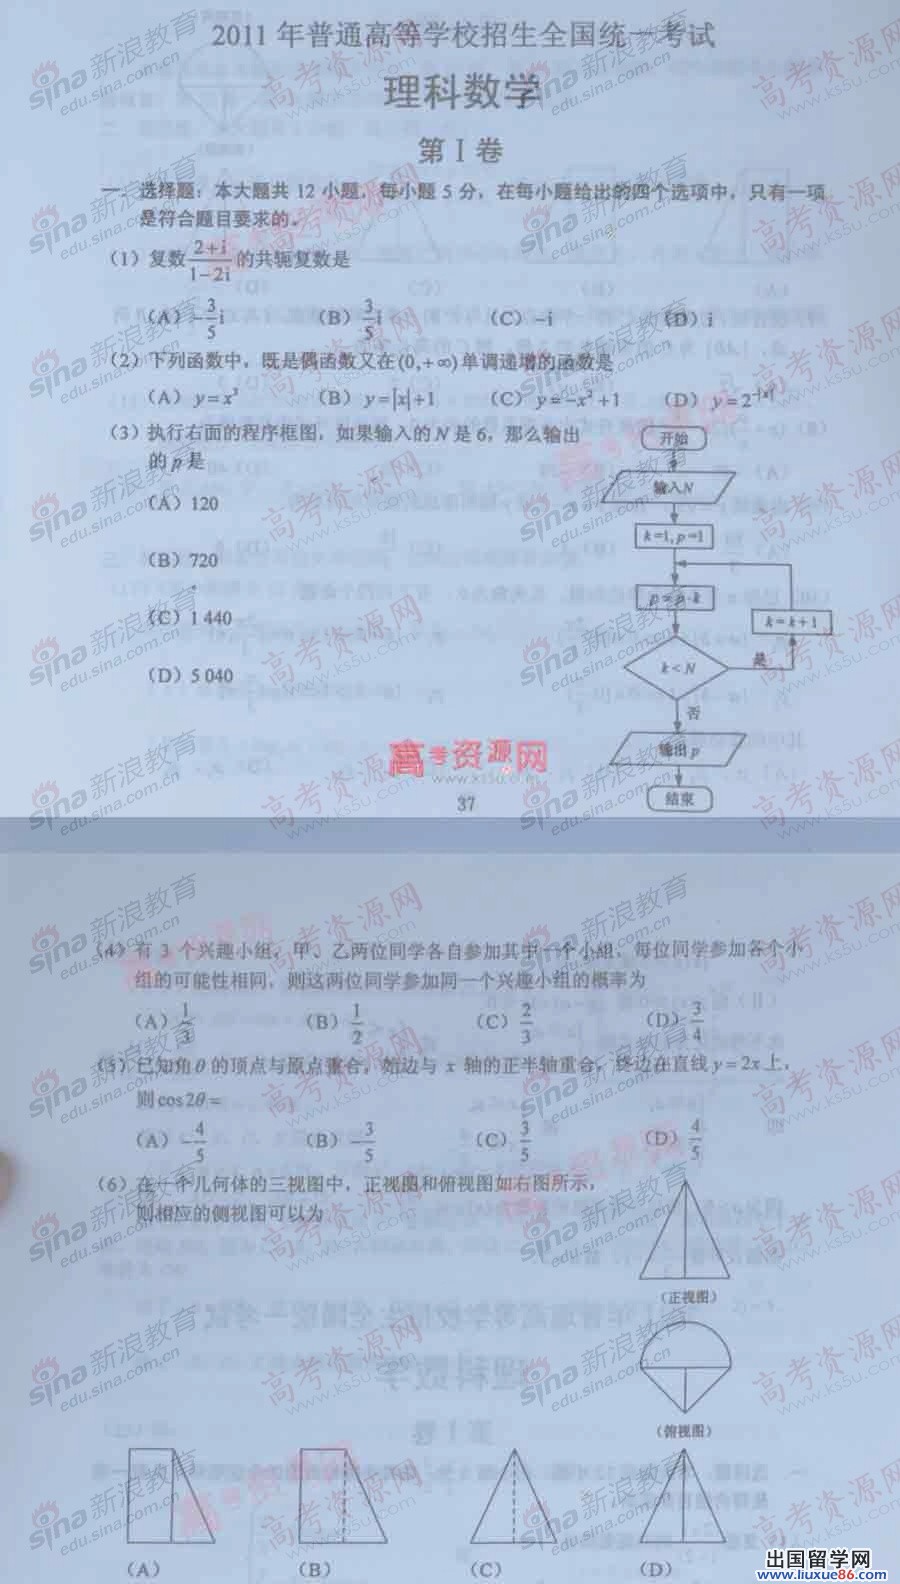 2011 年普通高等学校招生全国统一考试
理科数学
第 I 卷
一、选择题：本大题共 12 小题，每小题 5 分，在每小题给出的四个选项中，只有一项
是符合题目要求的。
（1）复数 (2+i)/(1−2i) 的共轭复数是
（A）−3/5 i （B）3/5 i （C）−i （D）i
（2）下列函数中，既是偶函数又在 (0,+∞) 单调递增的函数是
（A） y=x³ （B） y=|x|+1 （C） y=−x²+1 （D） y=2^(−|x|)
（3）执行右面的程序框图，如果输入的 N 是 6，那么输出
的 p 是
（A）120
（B）720
（C）1 440
（D）5 040
开始
输入N
k=1, p=1
p=p·k
k=k+1
k<N
是
否
输出 p
结束
高考资源网
www.ks5u.com
37
（4）有 3 个兴趣小组，甲、乙两位同学各自参加其中一个小组，每位同学参加各个小
组的可能性相同，则这两位同学参加同一个兴趣小组的概率为
（A）1/3 （B）1/2 （C）2/3 （D）3/4
（5）已知角 θ 的顶点与原点重合，始边与 x 轴的正半轴重合，终边在直线 y=2x 上，
则 cos2θ=
（A）−4/5 （B）−3/5 （C）3/5 （D）4/5
（6）在一个几何体的三视图中，正视图和俯视图如右图所示，
则相应的侧视图可以为
（正视图）
（俯视图）
（A） （B） （C） （D）
sina新浪教育
edu.sina.com.cn
高考资源网
www.ks5u.com
出国留学网
www.liuxue86.com